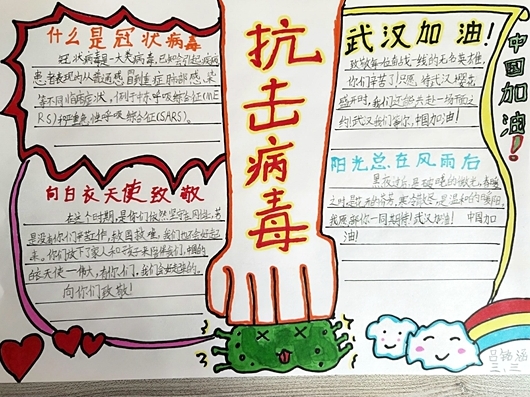 什么是冠状病毒
冠状病毒是一大类病毒，已知会引起疾病
患者表现为从普通感冒到重症肺部感染
等不同临床症状，例如中东呼吸综合征(ME
RS)和严重急性呼吸综合征(SARS)。
向白衣天使致敬
在这个时期，是你们依然坚守在岗位，若
是没有你们辛苦工作，救国救难，我们也不会好起
来。你们放下了家人和孩子来陪伴我们，中国的
白衣天使一伟大，有你们，我们会好起来的。
向你们致敬！
抗击病毒
武汉加油！
致敬每一位奋战一线的无名英雄，
你们辛苦了！只愿，待武汉樱花
盛开时，我们还能去赴一场荷花之
约！武汉我们等你，中国加油！
阳光总在风雨后
黑夜过后，是破晓的微光，春暖
之时，是花香的芬芳，寒冬散尽，是温和的暖阳。
我愿和你一同期待！武汉加油！中国加
油！
中国加油！
三、三